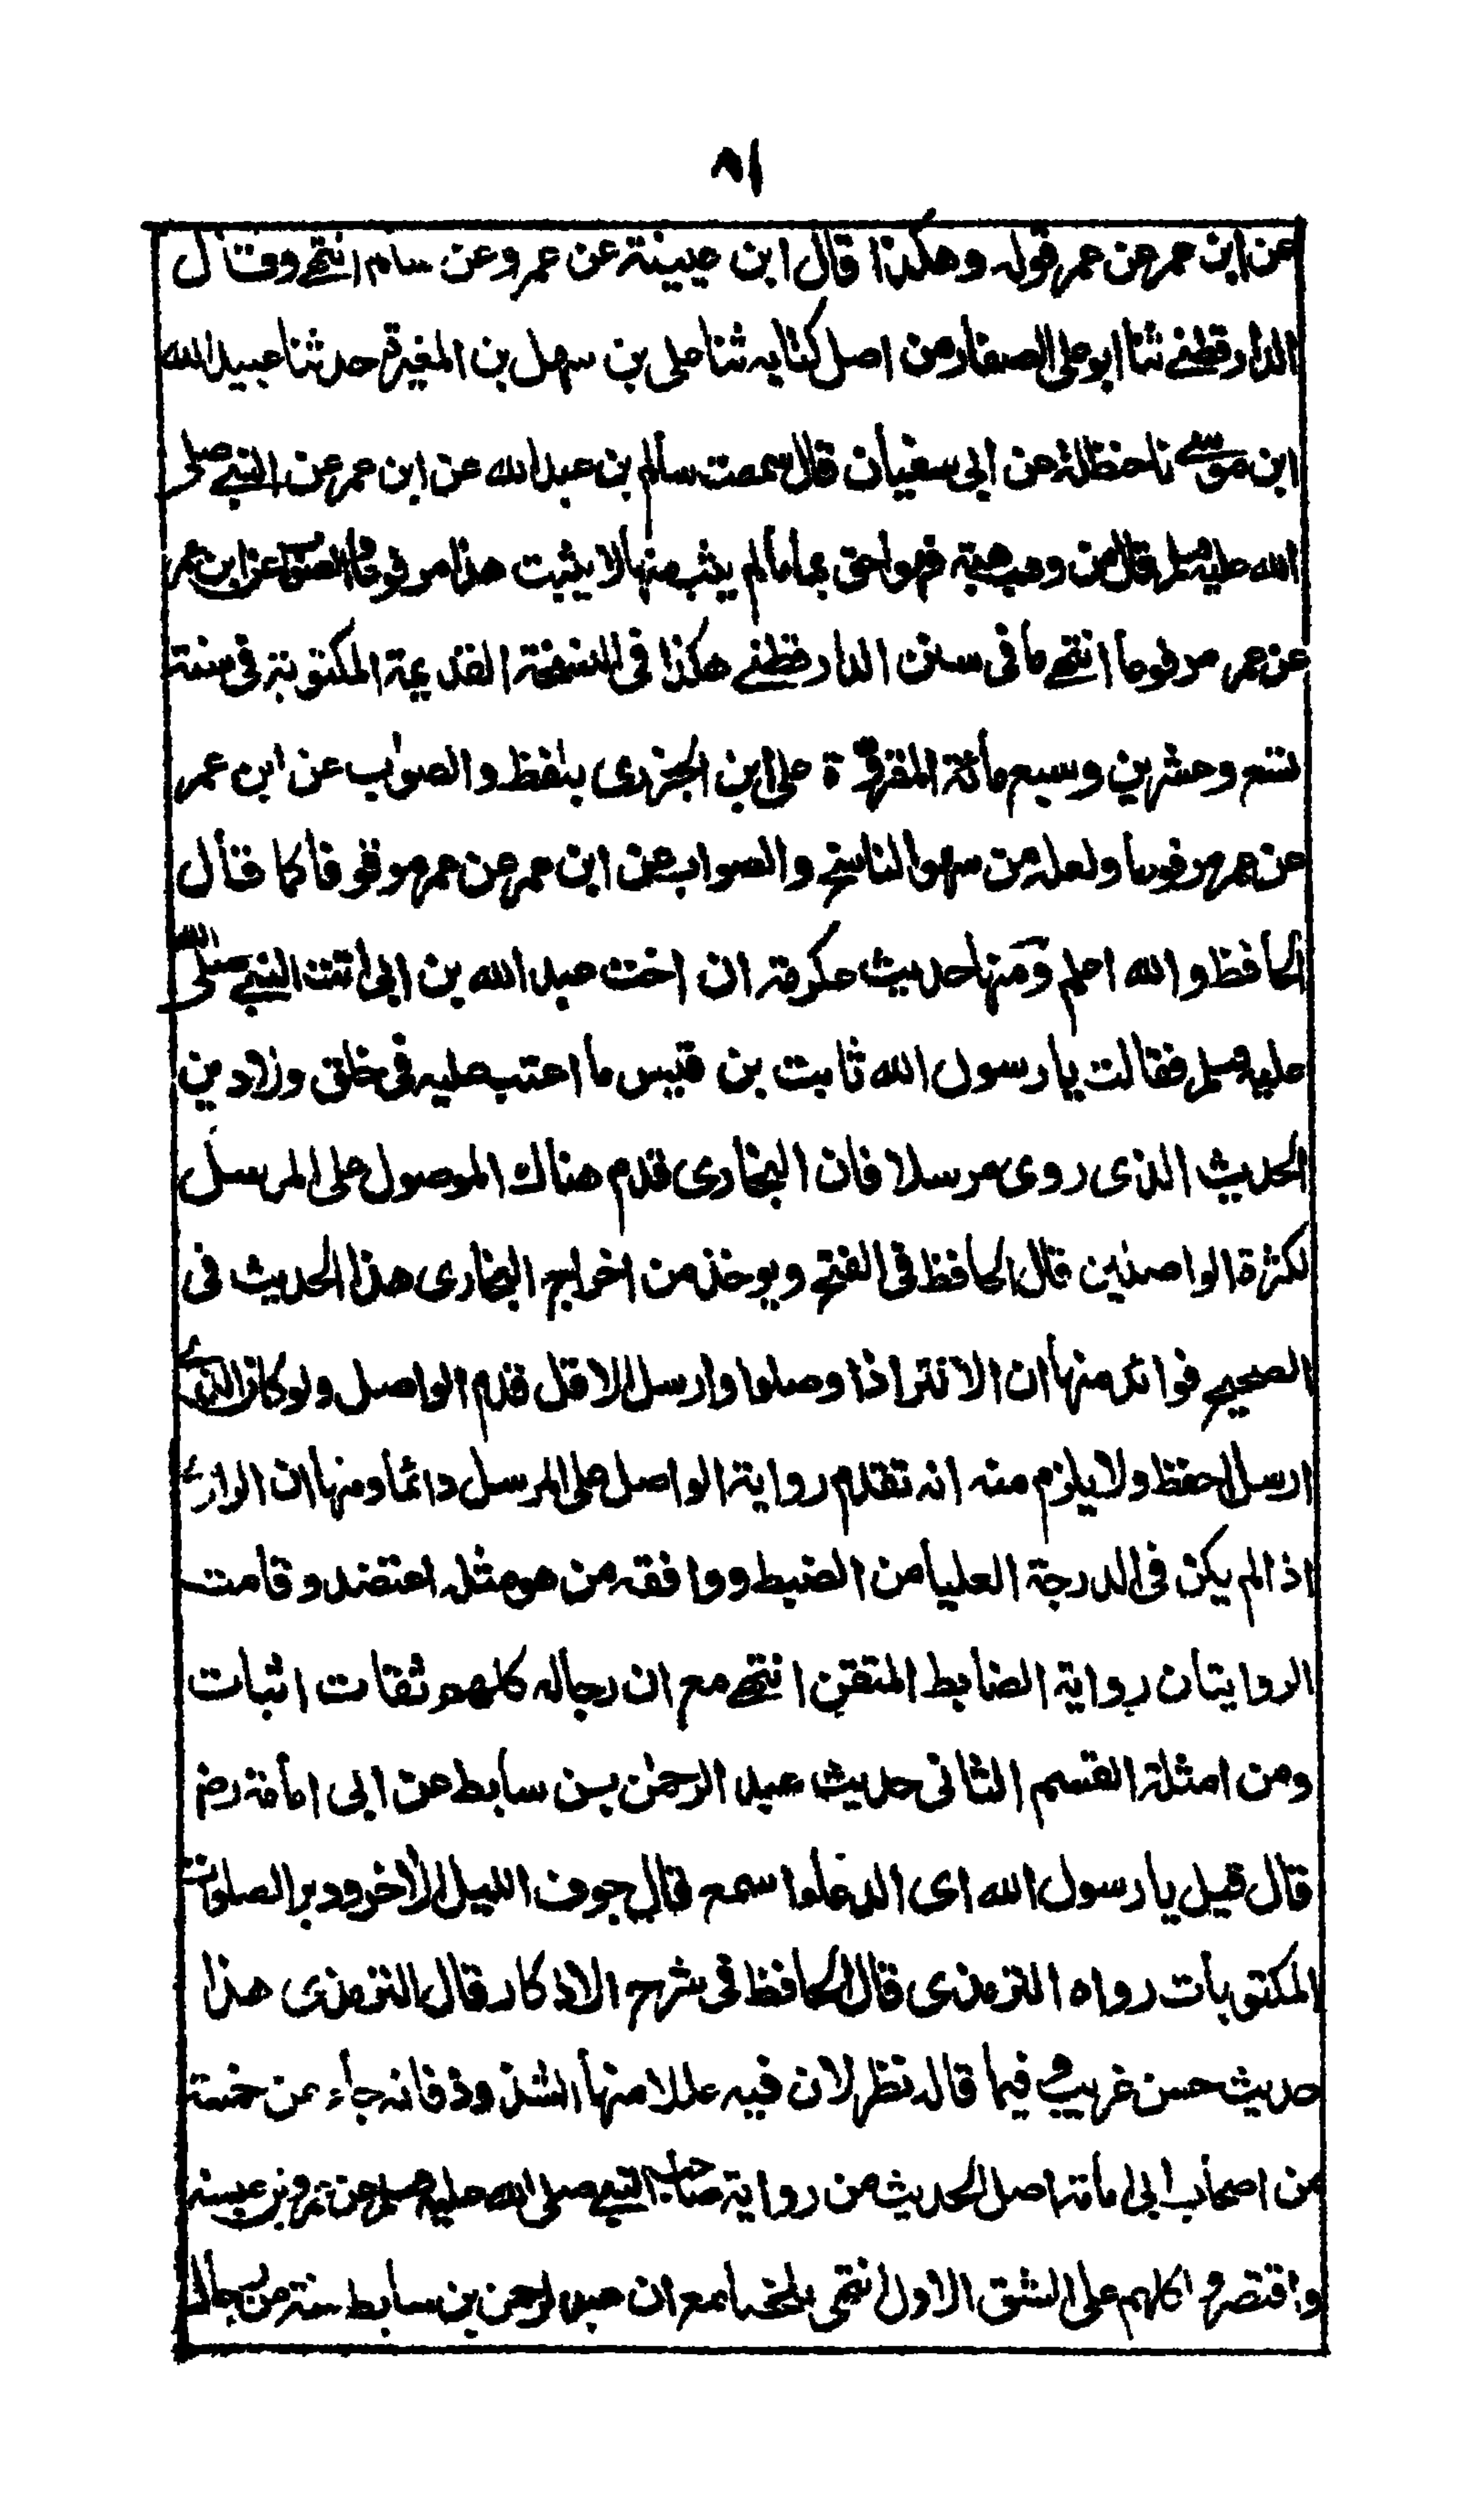 ٨١
عن ابن عمر عن عمر قوله وهكذا قال ابن عيينة عن عمرو عن سالم انتهى وقال
الدارقطنى ثنا ابو على الصفار من اصل كتابه ثنا على بن سهل بن المغيرة حدثنا عبيد الله
ابن موسى نا حنظلة عن ابى سفيان قال سمعت سالم بن عبد الله عن ابن عمر عن النبى صلى
الله عليه وسلم قال من وهب هبة فهو احق بها ما لم يثب منها لا يثبت هذا مرفوعا والصواب عن ابن عمر
عن عمر مرفوعا انتهى ما فى سنن الدارقطنى هكذا فى النسخة القديمة المكتوبة فى سنة
تسع وعشرين وسبع مائة المقروءة على ابن الجزرى بلفظ والصواب عن ابن عمر
عن عمر مرفوعا ولعله من سهو الناسخ والصواب عن ابن عمر عن عمر موقوفا كما قال
الحافظ والله اعلم ومنها حديث عكرمة ان اخت عبد الله بن ابى اتت النبى صلى الله
عليه وسلم فقالت يا رسول الله ثابت بن قيس ما اعتب عليه فى خلق ولا دين
الحديث الذى روى مرسلا فان البخارى قدم هناك الموصول على المرسل
لكثرة الواصلين قال الحافظ فى الفتح ويوخذ من اخراج البخارى هذا الحديث فى
الصحيح فوائد منها ان الاكثر اذا وصلوا وارسل الاقل قدم الواصل ولو كان الذى
ارسل احفظ ولا يلزم منه انه تقدم رواية الواصل على المرسل دائما ومنها ان الراوى
اذا لم يكن فى الدرجة العليا من الضبط ووافقه من هو مثله اعتضد وقامت
الروايتان رواية الضابط المتقن انتهى مع ان رجاله كلهم ثقات اثبات
ومن امثلة القسم الثانى حديث عبد الرحمن بن سابط عن ابى امامة رض
قال قيل يا رسول الله اى الدعاء اسمع قال جوف الليل الآخر ودبر الصلوات
المكتوبات رواه الترمذى قال الحافظ فى شرح الاذكار قال الترمذى هذا
حديث حسن غريب وفيما قاله نظر لان فيه عللا منها الشذوذ فانه جاء عن خمسة
من اصحاب ابى امامة اصل الحديث من رواية صاحب النبى صلى الله عليه وسلم عن عمرو بن عبسة
واقتصروا كلهم على الشق الاول انتهى ملخصا مع ان عبد الرحمن بن سابط ستة من رجال